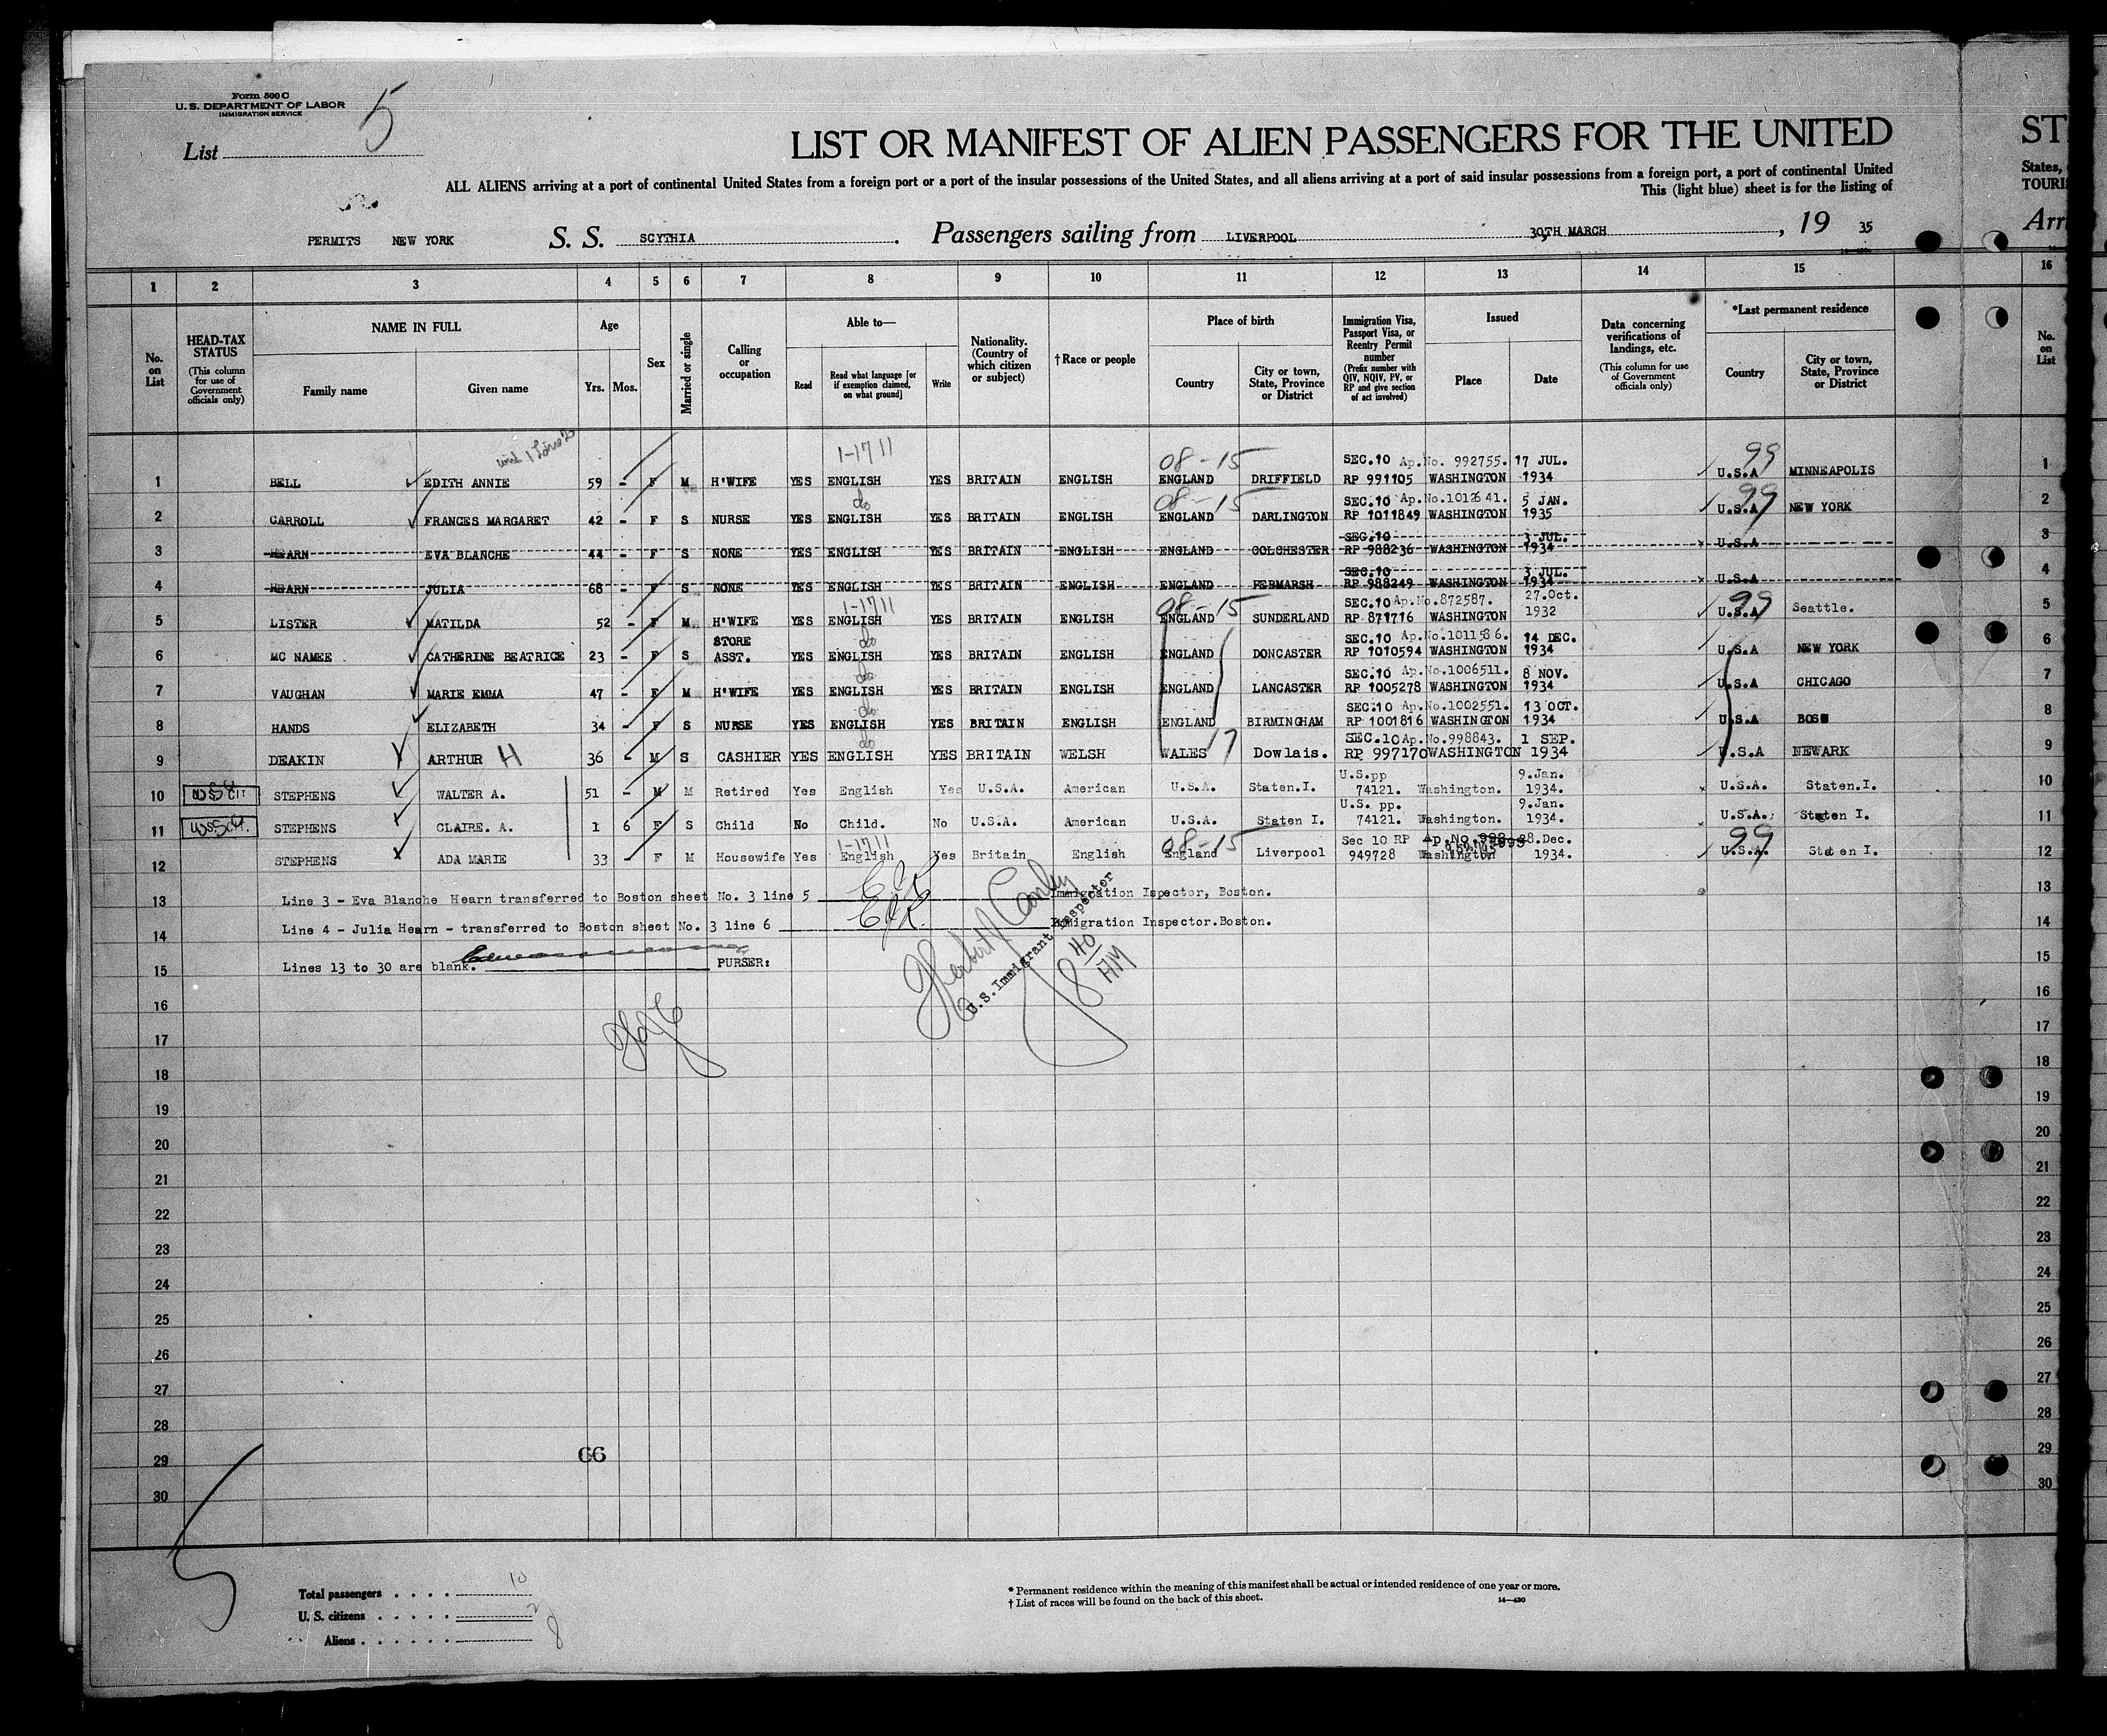 Form 500 C
U. S. DEPARTMENT OF LABOR
IMMIGRATION SERVICE
List 5
LIST OR MANIFEST OF ALIEN PASSENGERS FOR THE UNITED
ST
ALL ALIENS arriving at a port of continental United States from a foreign port or a port of the insular possessions of the United States, and all aliens arriving at a port of said insular possessions from a foreign port, a port of continental United
States,
This (light blue) sheet is for the listing of
TOURI
PERMITS NEW YORK S. S. SCYTHIA . Passengers sailing from LIVERPOOL 30TH MARCH , 19 35
Arr
1 2 3 4 5 6 7 8 9 10 11 12 13 14 15 16
No. on List
HEAD-TAX STATUS (This column for use of Government officials only)
NAME IN FULL
Family name Given name
Age
Yrs. Mos.
Sex
Married or single
Calling or occupation
Able to—
Read
Read what language [or if exemption claimed, on what ground]
Write
Nationality. (Country of which citizen or subject)
† Race or people
Place of birth
Country
City or town, State, Province or District
Immigration Visa, Passport Visa, or Reentry Permit number (Prefix number with QIV, NQIV, PV, or RP and give section of act involved)
Issued
Place Date
Data concerning verifications of landings, etc. (This column for use of Government officials only)
*Last permanent residence
Country
City or town, State, Province or District
No. on List
1-1711 08-15 SEC.10 Ap.No. 992755. 17 JUL. 99
1 BELL EDITH ANNIE 59 - F M H'WIFE YES ENGLISH YES BRITAIN ENGLISH ENGLAND DRIFFIELD RP 991105 WASHINGTON 1934 U.S.A MINNEAPOLIS 1
do 08-15 SEC.10 Ap.No.1012641. 5 JAN. 99
2 CARROLL FRANCES MARGARET 42 - F S NURSE YES ENGLISH YES BRITAIN ENGLISH ENGLAND DARLINGTON RP 1011849 WASHINGTON 1935 U.S.A NEW YORK 2
SEC.10 3 JUL.
3 HEARN EVA BLANCHE 44 - F S NONE YES ENGLISH YES BRITAIN ENGLISH ENGLAND COLCHESTER RP 988236 WASHINGTON 1934 U.S.A 3
SEC.10 3 JUL.
4 HEARN JULIA 68 - F S NONE YES ENGLISH YES BRITAIN ENGLISH ENGLAND PEBMARSH RP 988249 WASHINGTON 1934 U.S.A 4
1-1711 08-15 SEC.10 Ap.No.872587. 27.Oct. 99
5 LISTER MATILDA 52 - F M H'WIFE YES ENGLISH YES BRITAIN ENGLISH ENGLAND SUNDERLAND RP 871716 WASHINGTON 1932 U.S.A Seattle. 5
do SEC.10 Ap.No.1011586. 14 DEC.
6 MC NAMEE CATHERINE BEATRICE 23 - F S STORE ASST. YES ENGLISH YES BRITAIN ENGLISH ENGLAND DONCASTER RP 1010594 WASHINGTON 1934 U.S.A NEW YORK 6
do SEC.10 Ap.No.1006511. 8 NOV.
7 VAUGHAN MARIE EMMA 47 - F M H'WIFE YES ENGLISH YES BRITAIN ENGLISH ENGLAND LANCASTER RP 1005278 WASHINGTON 1934 U.S.A CHICAGO 7
do SEC.10 Ap.No.1002551. 13 OCT.
8 HANDS ELIZABETH 34 - F S NURSE YES ENGLISH YES BRITAIN ENGLISH ENGLAND BIRMINGHAM RP 1001816 WASHINGTON 1934 U.S.A 8
do 17 SEC.10 Ap.No.998843. 1 SEP.
9 DEAKIN ARTHUR H 36 - M S CASHIER YES ENGLISH YES BRITAIN WELSH WALES Dowlais. RP 997170 WASHINGTON 1934 U.S.A NEWARK 9
U.S.pp 9.Jan.
10 STEPHENS WALTER A. 51 - M M Retired Yes English Yes U.S.A. American U.S.A. Staten.I. 74121. Washington. 1934. U.S.A. Staten.I. 10
U.S. pp. 9.Jan.
11 STEPHENS CLAIRE. A. 1 6 F S Child No Child. No U.S.A. American U.S.A. Staten I. 74121. Washington. 1934. U.S.A. Staten I. 11
1-1711 08-15 Sec 10 RP Ap.No. 8.Dec. 99
12 STEPHENS ADA MARIE 33 - F M Housewife Yes English Yes Britain English England Liverpool 949728 Washington 1934. U.S.A. Staten I. 12
13 Line 3 - Eva Blanche Hearn transferred to Boston sheet No. 3 line 5 Immigration Ispector, Boston. 13
14 Line 4 - Julia Hearn - transferred to Boston sheet No. 3 line 6 Immigration Inspector.Boston. 14
15 Lines 13 to 30 are blank. PURSER: 15
U.S. Immigrant Inspector
8 40 AM
16 16
17 17
18 18
19 19
20 20
21 21
22 22
23 23
24 24
25 25
26 26
27 27
28 28
29 66 29
30 30
5
Total passengers . . . . 10
U. S. citizens . . . . . 2
Aliens . . . . . . 8
* Permanent residence within the meaning of this manifest shall be actual or intended residence of one year or more.
† List of races will be found on the back of this sheet.
14—430